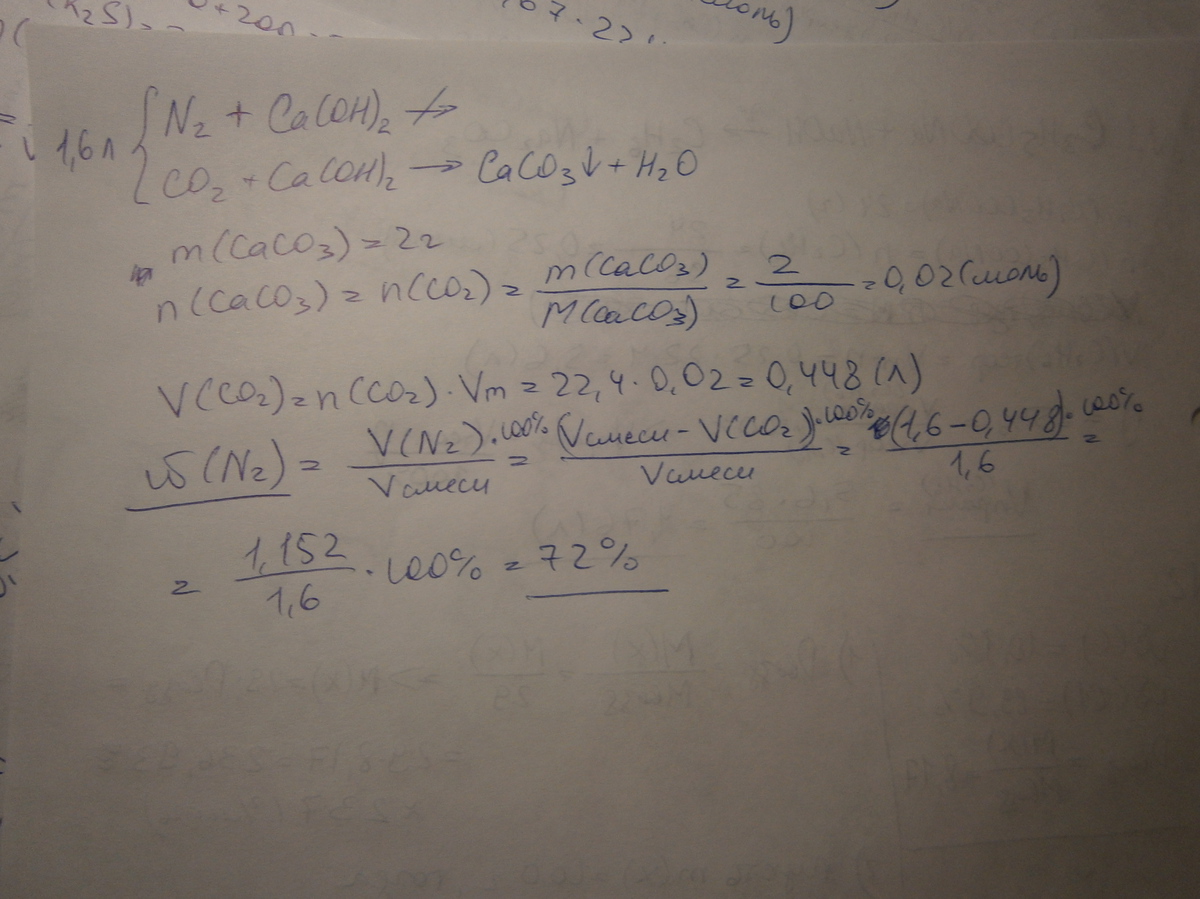 1,6л { N₂ + Ca(OH)₂ ↛
CO₂ + Ca(OH)₂ → CaCO₃↓ + H₂O
m(CaCO₃) = 2г
n(CaCO₃) = n(CO₂) = m(CaCO₃) / M(CaCO₃) = 2 / 100 = 0,02 (моль)
V(CO₂) = n(CO₂) · Vm = 22,4 · 0,02 = 0,448 (л)
ω(N₂) = V(N₂) · 100% / Vсмеси = (Vсмеси - V(CO₂)) · 100% / Vсмеси = (1,6 - 0,448) · 100% / 1,6 =
= 1,152 / 1,6 · 100% = 72%